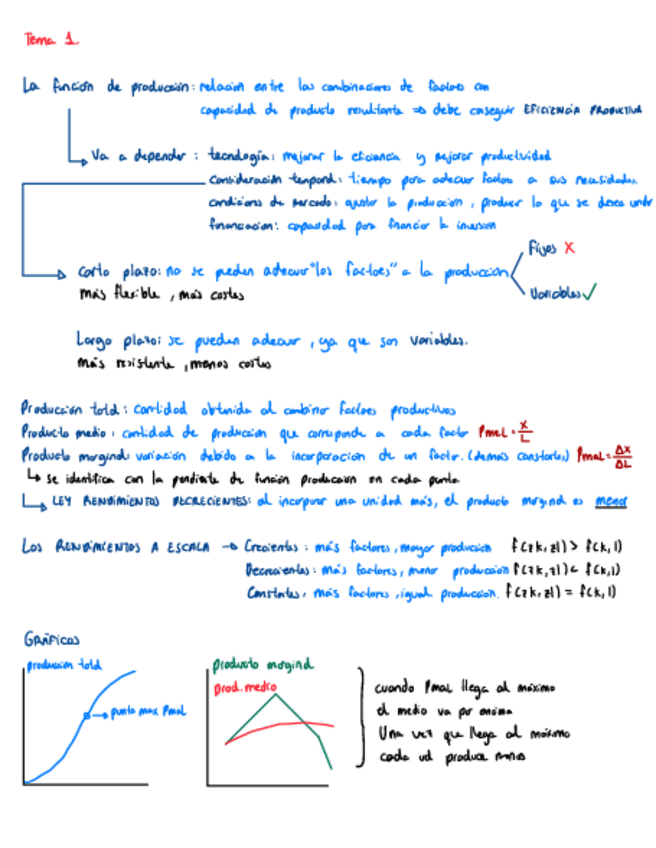 Tema 1.
La función de producción: relación entre las combinaciones de factores con
capacidad de producto resultante ⇒ debe conseguir EFICIENCIA PRODUCTIVA
Va a depender: tecnología: mejorar la eficiencia y mejorar productividad
consideración temporal: tiempo para adecuar factores a sus necesidades.
condiciones de mercado: ajustar la producción, producir lo que se desea
financiación: capacidad para financiar la inversión
Corto plazo: no se pueden adecuar "los factores" a la producción
Fijos X
Variables ✓
más flexible, más costes
Largo plazo: se pueden adecuar, ya que son variables.
más resistente, menos costes
Producción total: cantidad obtenida al combinar factores productivos
Producto medio: cantidad de producción que corresponde a cada factor PmeL = X/L
Producto marginal: variación debido a la incorporación de un factor. (demás constantes) PmaL = ΔX/ΔL
↳ se identifica con la pendiente de función producción en cada punto
↳ LEY RENDIMIENTOS DECRECIENTES: al incorporar una unidad más, el producto marginal es menor
LOS RENDIMIENTOS A ESCALA → Crecientes: más factores, mayor producción f(zk, zl) > f(k, l)
Decrecientes: más factores, menor producción f(zk, zl) < f(k, l)
Constantes: más factores, igual producción. f(zk, zl) = f(k, l)
GRÁFICOS
producción total
punto max Pmal
producto marginal
prod. medio
cuando Pmal llega al máximo
el medio va por encima
Una vez que llega al máximo
cada ud produce menos